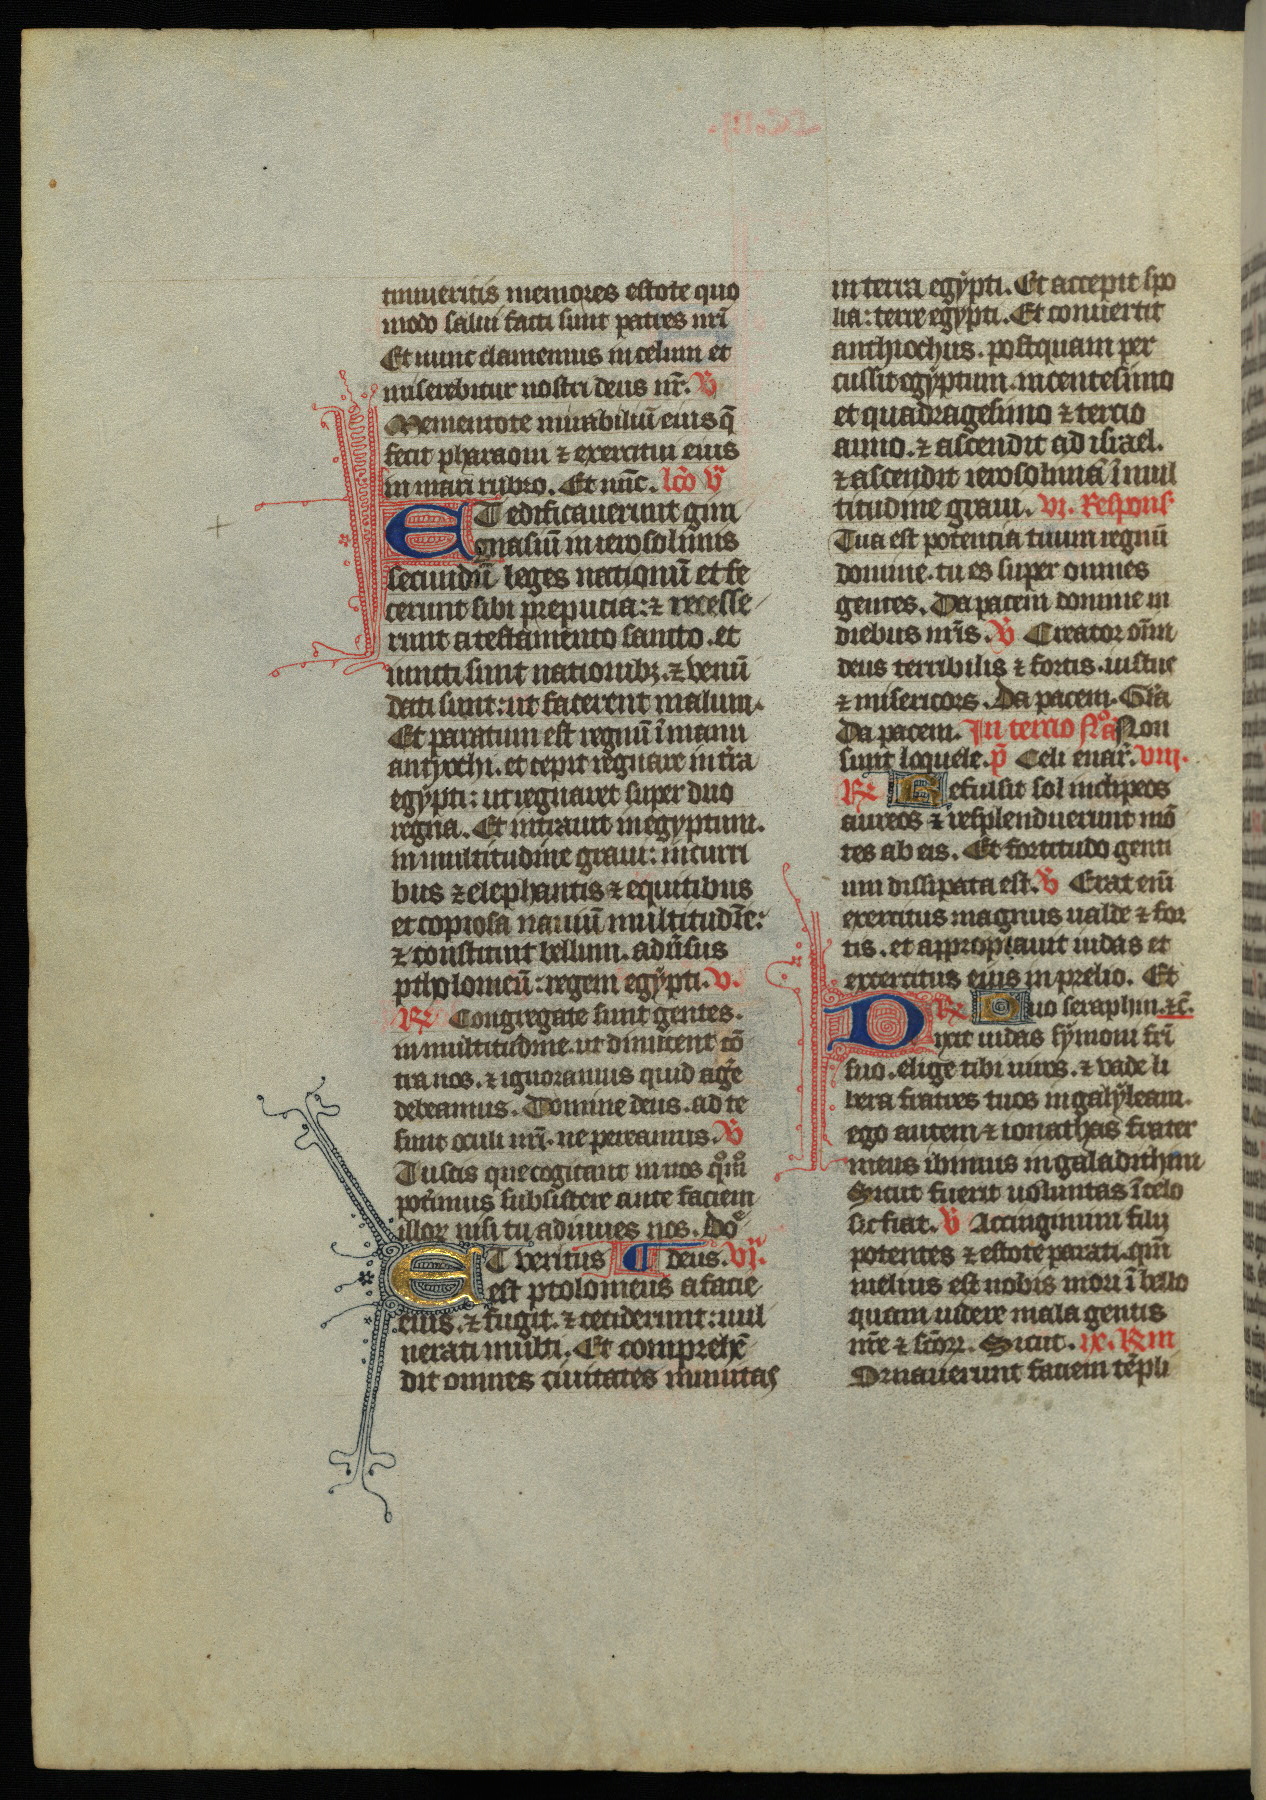 timueritis memores estote quo
modo salui facti sunt patres nr̄i
Et nunc clamemus in celum et
miserebitur nostri deus nr̄. V̄
Mementote mirabiliū eius q̄
fecit pharaoni ⁊ exercitui eius
in mari rubro. Et nūc. lcō v̄
ET edificauerunt gim
gnasiū in ierosolimis
secundū leges nationū et fe
cerunt sibi prepucia: ⁊ recesse
runt a testamento sancto. et
iuncti sunt nationibꝫ. ⁊ venū
dati sunt: ut facerent malum.
Et paratum est regnū ī manu
antyochi. et cepit regnare in tr̄a
egypti: ut regnaret super duo
regna. Et intrauit in egyptum.
in multitudine graui: in curri
bus ⁊ elephantis ⁊ equitibus
et copiosa nauiū multitudīe:
⁊ constituit bellum. adūsus
ptholomeū: regem egypti. v.
R̄ Congregate sunt gentes.
in multitudine. ut dimicent cō
tra nos. ⁊ ignoramus quid age̅
debeamus. Domine deus. ad te
sunt oculi nr̄i. ne pereamus. V̄
Tu scis que cogitant in nos qūo
poterimus subsistere ante faciem
illoꝝ nisi tu adiuues nos. Do
ET veritus ¶ deus. vj.
est ptolomeus a facie
eius. ⁊ fugit. ⁊ ceciderunt: uul
nerati multi. Et comprehē
dit omnes ciuitates munitas
in terra egypti. Et accepit spo
lia: terre egypti. Et conuertit
anthiochus. postquam per
cussit egyptum. in centesimo
et quadragesimo ⁊ tercio
anno. ⁊ ascendit ad israel.
⁊ ascendit ierosolimā ī mul
titudine graui. vj. Respons
Tua est potentia tuum regnū
domine. tu es super omnes
gentes. Da pacem domine in
diebus nr̄is. V̄ Creator oīm
deus terribilis ⁊ fortis. iustus
⁊ misericors. Da pacem. Glā
Da pacem. In tercio Nō aā Non
sunt loquele. p̄ Celi enar̄. viij.
R̄ Refulsit sol in clipeos
aureos ⁊ resplenduerunt mō
tes ab eis. Et fortitudo genti
um dissipata est. V̄ Erat enī
exercitus magnus ualde ⁊ for
tis. et appropiauit iudas et
exercitus eius in prelio. Et
R̄ Duo seraphin. ⁊c̄.
Dixit iudas symoni fr̄i
suo. elige tibi uiros. ⁊ vade li
bera fratres tuos in galyleam.
ego autem ⁊ ionathas frater
meus ibimus in galadithim
Sicut fuerit uoluntas ī celo
sic fiat. V̄ Accingimini filij
potentes ⁊ estote parati. qm̄
melius est nobis mori ī bello
quam uidere mala gentis
nr̄e ⁊ sc̄orꝝ. Sicut. ix. Rm
Ornauerunt faciem tēpli